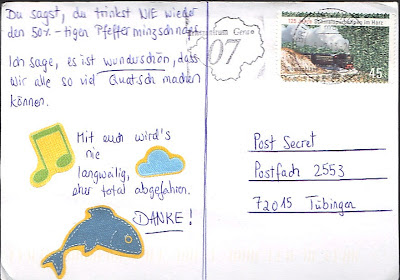 Du sagst, du trinkst NIE wieder
den 50%-tigen Pfefferminzschnaps
Ich sage, es ist wunderschön, dass
wir alle so viel Quatsch machen
können.
Mit euch wird's
nie
langweilig,
eher total abgefahren.
DANKE!
07
45
Post Secret
Postfach 2553
72015 Tübingen